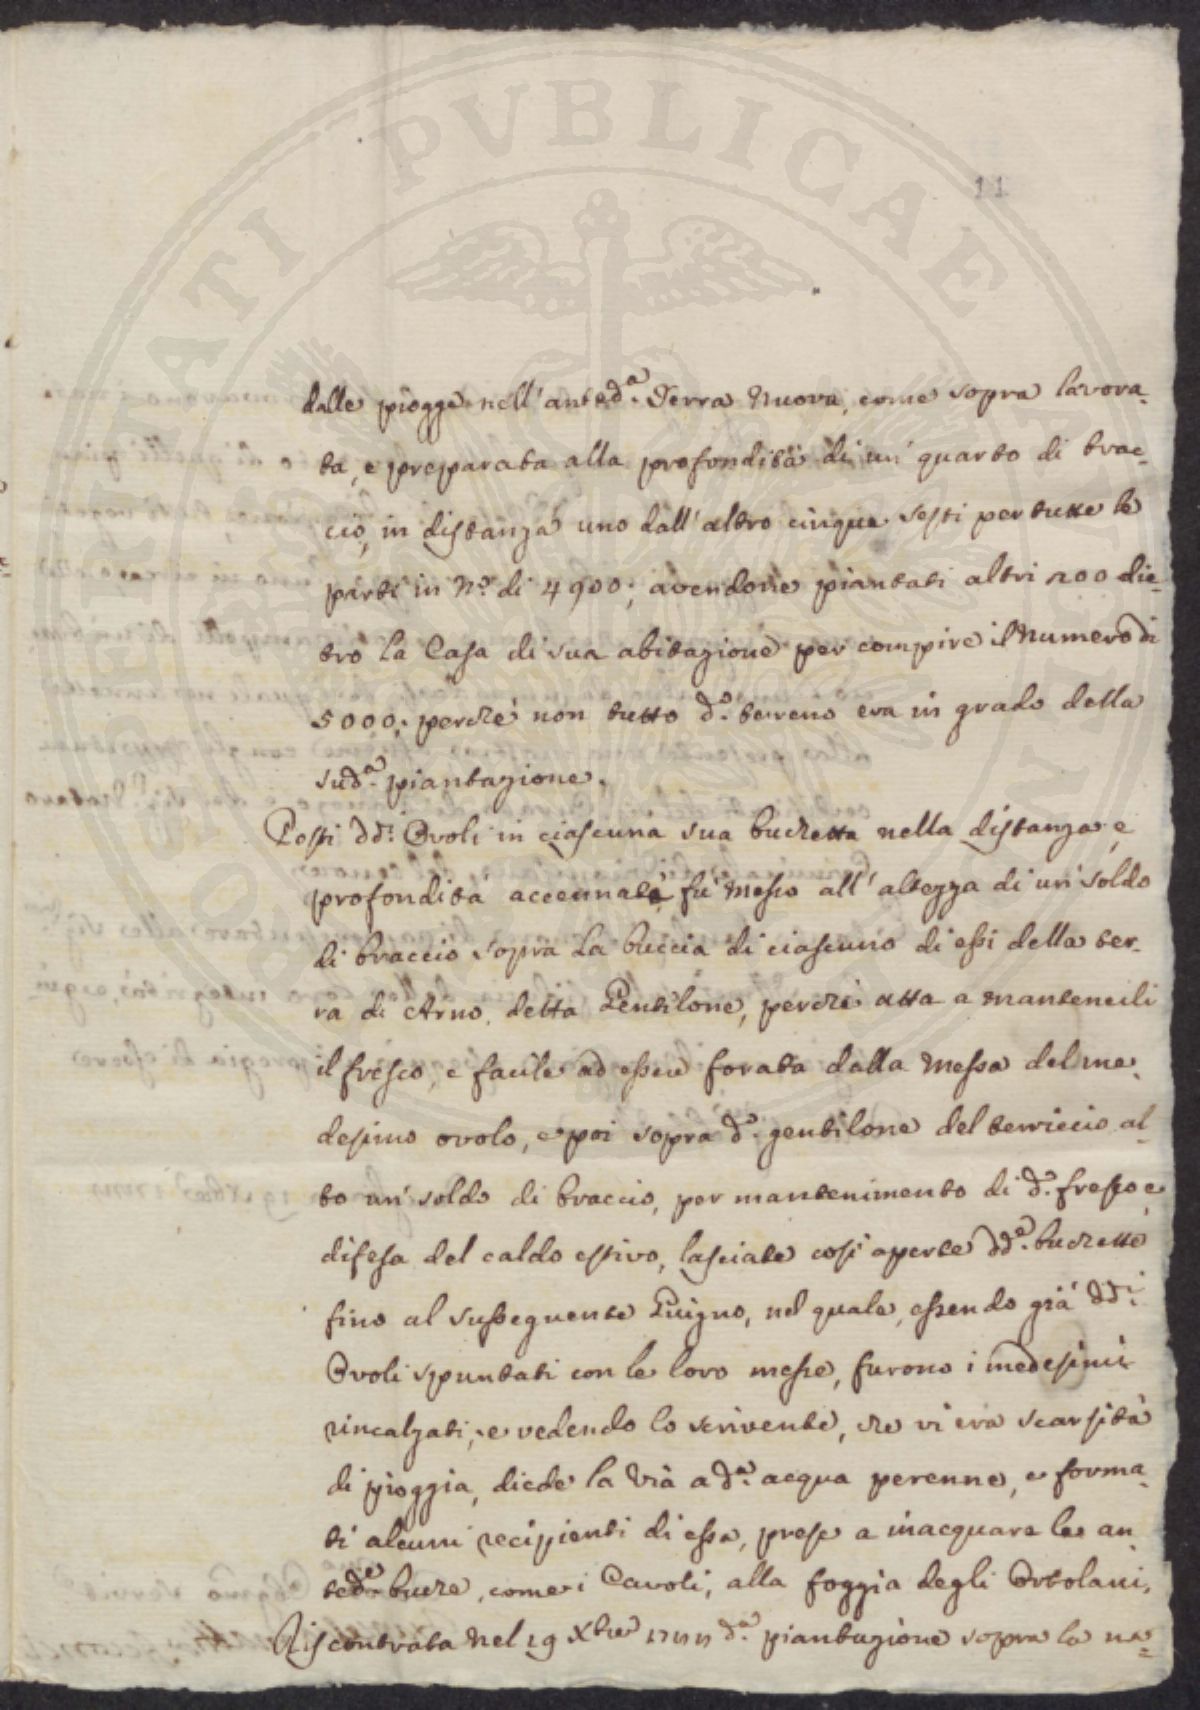 PROSPERITATI PVBLICAE
11
dalle piogge nell'anted.ª Terra nuova, come sopra lavora-
ta, e preparata alla profondità di un' quarto di brac-
cio, in distanza uno dall'altro cinque sesti per tutte le
parti in N.º di 4900; avendone piantati altri 100 die-
tro la Casa di sua abitazione per compire il Numero di
5000; perchè non tutto d.º terreno era in grado della
sud.ª piantazione.
Posti dd.i Ovoli in ciascuna sua buchetta nella distanza, e
profondità accennate, fù messo all'altezza di un' soldo
di braccio sopra la buccia di ciascuno di essi della ter-
ra di Arno, detta Gentilone, perchè atta a mantenerli
il fresco, e facile ad essere forata dalla messa del me-
desimo ovolo, e poi sopra d.º gentilone del terriccio al-
to un' soldo di braccio, per mantenimento di d.º fresco e
difesa del caldo estivo, lasciate così aperte dd.e buchette
fino al susseguente Giugno, nel quale, essendo già dd.i
Ovoli spuntati con le loro messe, furono i medesimi
rincalzati, e vedendo lo scrivente, che vi era scarsità
di pioggia, diede la via a d.ª acqua perenne, e forma-
ti alcuni recipienti di essa, prese a inacquare le an
ted.e buche, come i Cavoli, alla foggia degli Ortolani,
Riscontrata nel 19 Xbre d.ª piantazione sopra la na-